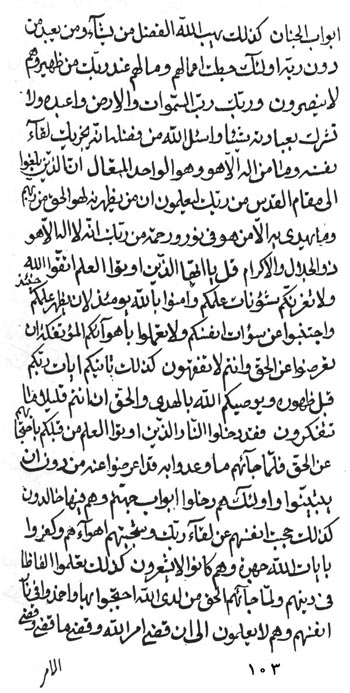 ابواب الجنان كذلك يهب الله الفضل من يشآء ومن يعبد من
دون ربه اولئك حبطت اعمالهم وما لهم عند ربك من ظهير وهم
لا ينصرون وربك رب السموات والارض واعبده ولا
تشرك بعبادته شيئا واسئل الله من فضله انه يجزيك لقآء
نفسه وما من اله الا هو وهو الواحد المتعال ان الذين بلغوا
الى مقام القدس من ربك ليعلمون ان من يظهر به لهو الحق من ربهم
وما يهدى به الا من هو فى نور ورحمة من ربك انه لا اله الا هو
ذو الجلال والاكرام قل يا ايها الذين اوتوا العلم اتقوا الله
ولا تغرنكم شئونات علمكم وامنوا بالله يومئذ لان يظهر عليكم حينئذ
واجتنبوا عن سوآت انفسكم ولا تعملوا باهوآئكم المؤتفكة ان
تعرضوا عن الحق وانتم لا تفقهون كذلك تأتيكم ايات ربكم
قبل ظهوره ويوصيكم الله بالهدى والحق ان انتم قليلا ما
تتفكرون وقد دخلوا النار الذين اوتوا العلم من قبلكم باحتجابهم
عن الحق فلما جآئهم ما وعدوا به قد اعرضوا عنه من دون ان
يتبينوا واولئك هم دخلوا ابواب جهنم وهم فيها خالدون
كذلك حجبت انفسهم عن لقآء ربك وسجنتهم اهوآءهم وكفروا
بايات الله جهرة وهم كانوا لا يشعرون كذلك يعلموا الفاظا
فى دينهم ولما جآئهم الحق من لدى الله احتجبوا بها واخذوا فى نار
انفسهم وهم لا يعلمون الى ان قضى امر الله وقضى ما قضى وقضى
١٠٣
الامر